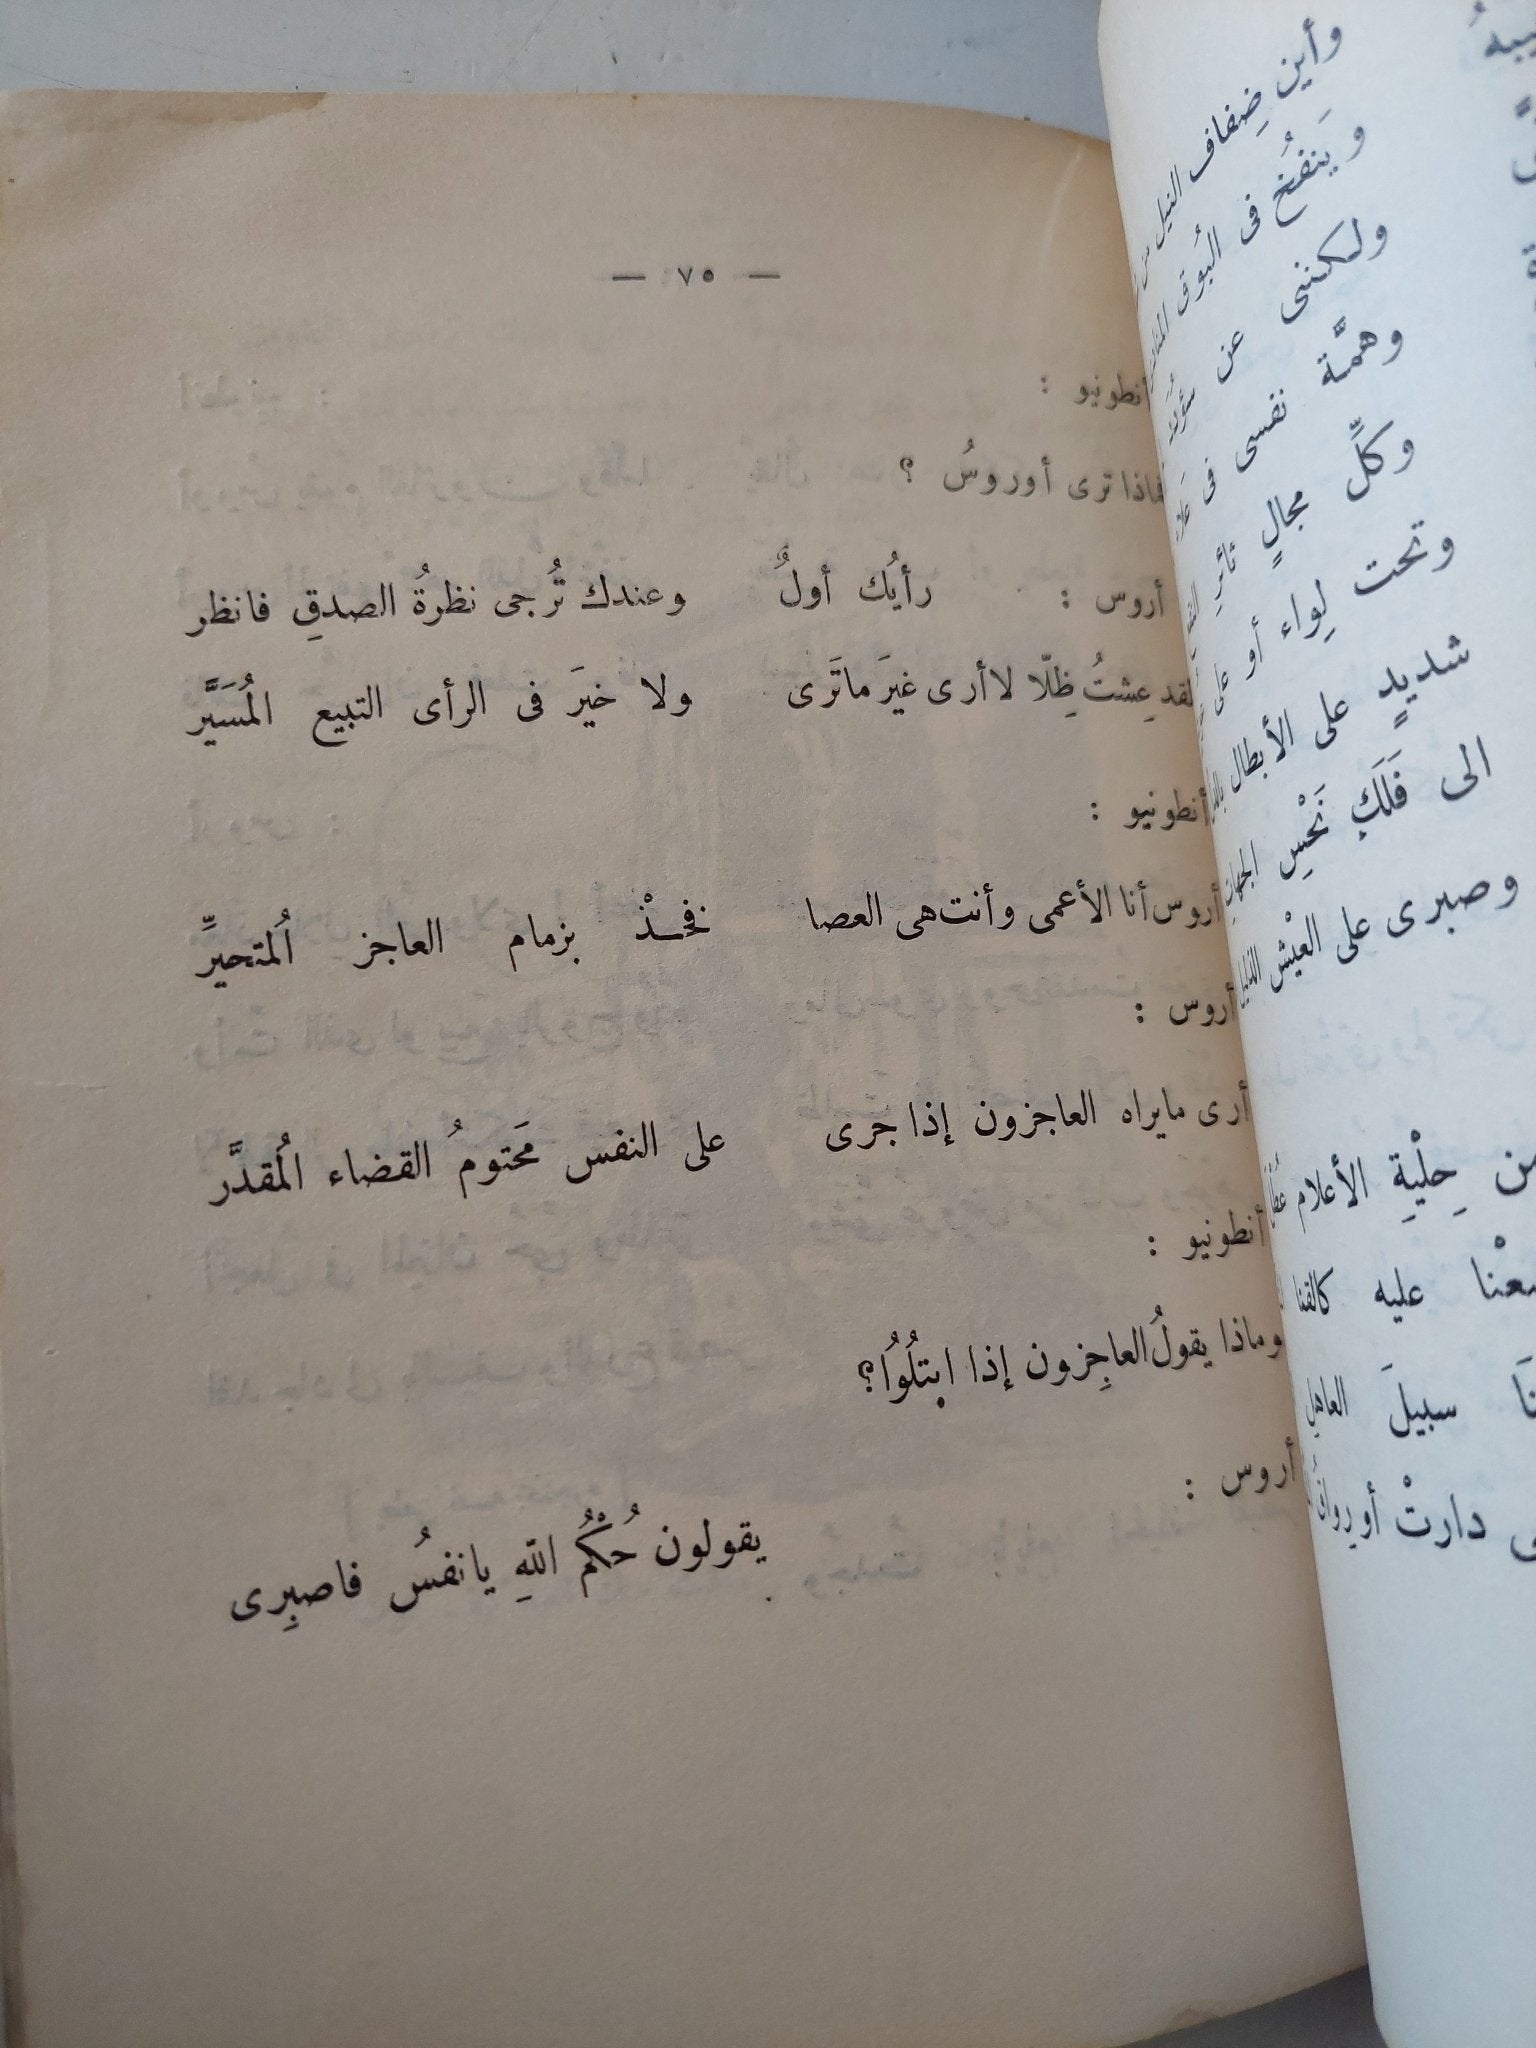 — ٧٥ —
أنطونيو :
فاذا ترى أوروسُ ؟
أروس : رأيُك أولٌ وعندك تُرجى نظرةُ الصدقِ فانظر
لقد عِشتُ ظِلّا لا أرى غيرَ ما تَرى ولا خيرَ فى الرأى التبيع المُسَيَّر
أنطونيو :
أروس أنا الأعمى وأنت هى العصا فخـــذْ بزمام العاجز المُتحيرِّ
أروس :
أرى ما يراه العاجزون إذا جرى على النفس مَحتومُ القضاء المُقدَّر
أنطونيو :
وماذا يقولُ العاجِزون إذا ابتلُوُا؟
أروس :
يقولون حُكْمُ اللهِ يا نفسُ فاصبِرى
وأين ضِفاف النيل من
ويَنفُخ فى البُوق
ولكننى عن
وهمَّة نفسى فى
وكلِّ مجالٍ ثائرِ
وتحت لِواء أو على
شديدٍ على الأبطال
الى فَلَكٍ نَحْسِ
وصبرى على العيْش
حِلْيةِ الأعلام
عليه كالقنا
سبيلَ العاهل
دارتْ أو